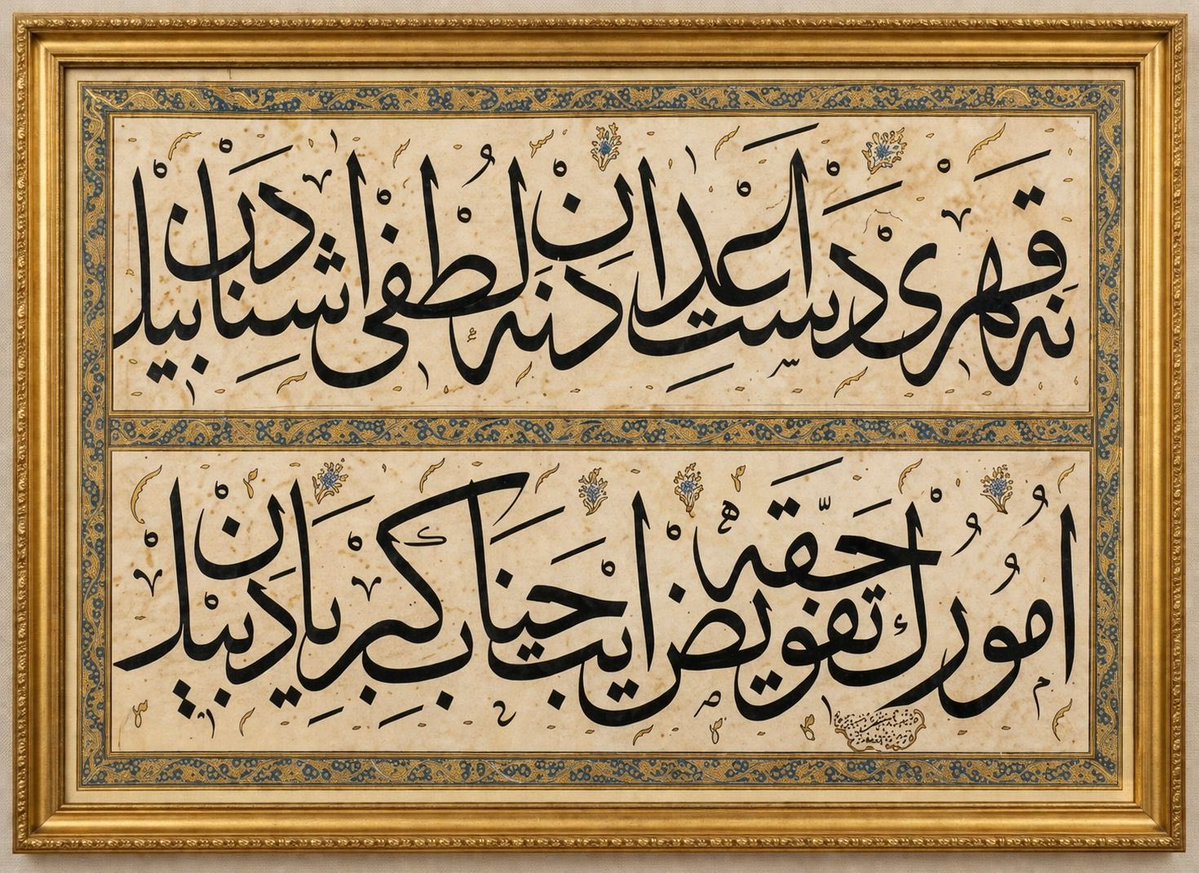 نه قهری دست اعدادن نه لطفی اشنادن بیل
امورك حقه تفویض ایت جناب كبریادن بیل